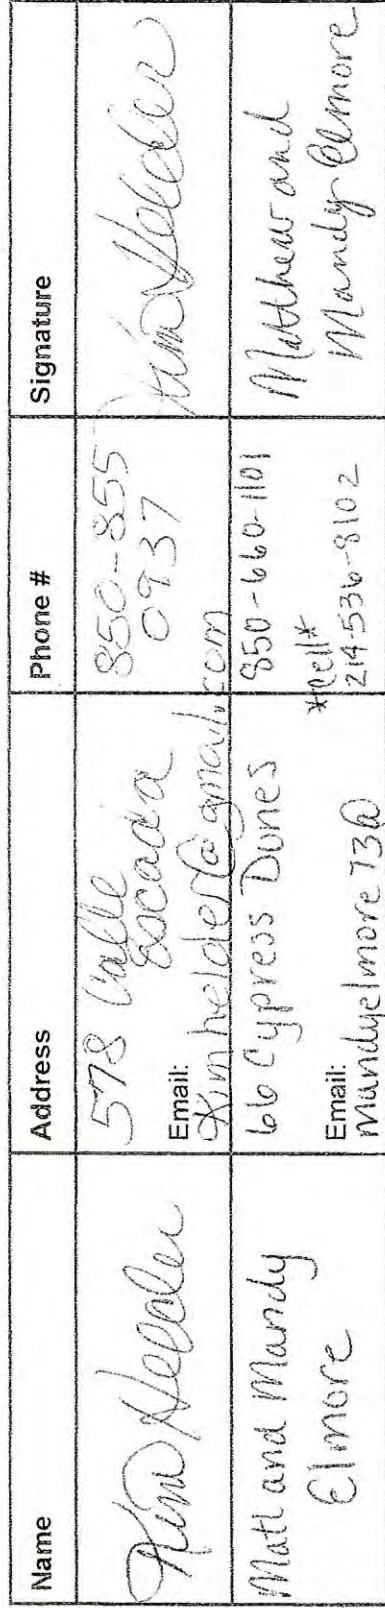 Name Address Phone # Signature
Kim Helder
578 Calle
Escada
Email:
Kimhelder@gmail.com
850-855
0937
Kim Helder
Matt and Mandy
Elmore
66 Cypress Dunes
Email:
mandyelmore73@
850-660-1101
*cell*
214-536-8102
Matthew and
Mandy Elmore